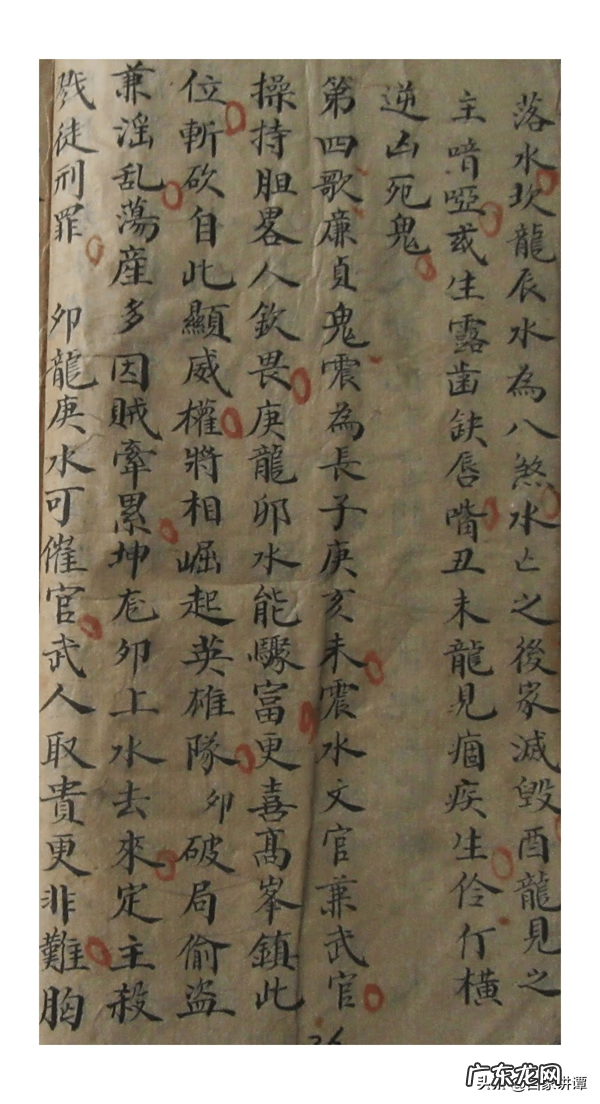 落水坎龍辰水為八煞水亡之後家滅毀酉龍見之
主喑啞或生露齒缺唇嘴丑未龍見痼疾生伶仃橫
逆凶死鬼
第四歌廉貞鬼震為長子庚亥未震水文官兼武官
操持胆畧人欽畏庚龍卯水能驟富更喜髙峯鎮此
位斬砍自此顯威權將相崛起英雄隊 卯破局偷盗
兼滛乱蕩産多因賊牽累坤卮卯上水去來定主殺
戮徒刑罪 卯龍庚水可催官武人取貴更非難胸
26
广东龙网
头条 @百家讲谭